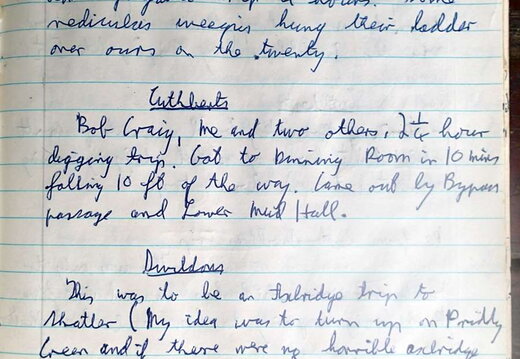 rediculus weegies hung their ladder
over ours on the twenty.
Cuthberts
Bob Craig, me and two others, 2 1/4 hour
digging trip. Got to Dinning Room in 10 mins
falling 10 ft of the way. Came out by Bypass
passage and Lower Mud Hall.
Swildons
This was to be an Axbridge trip to
Shatter (My idea was to turn up on Priddy
Green and if there were no horrible axbridge